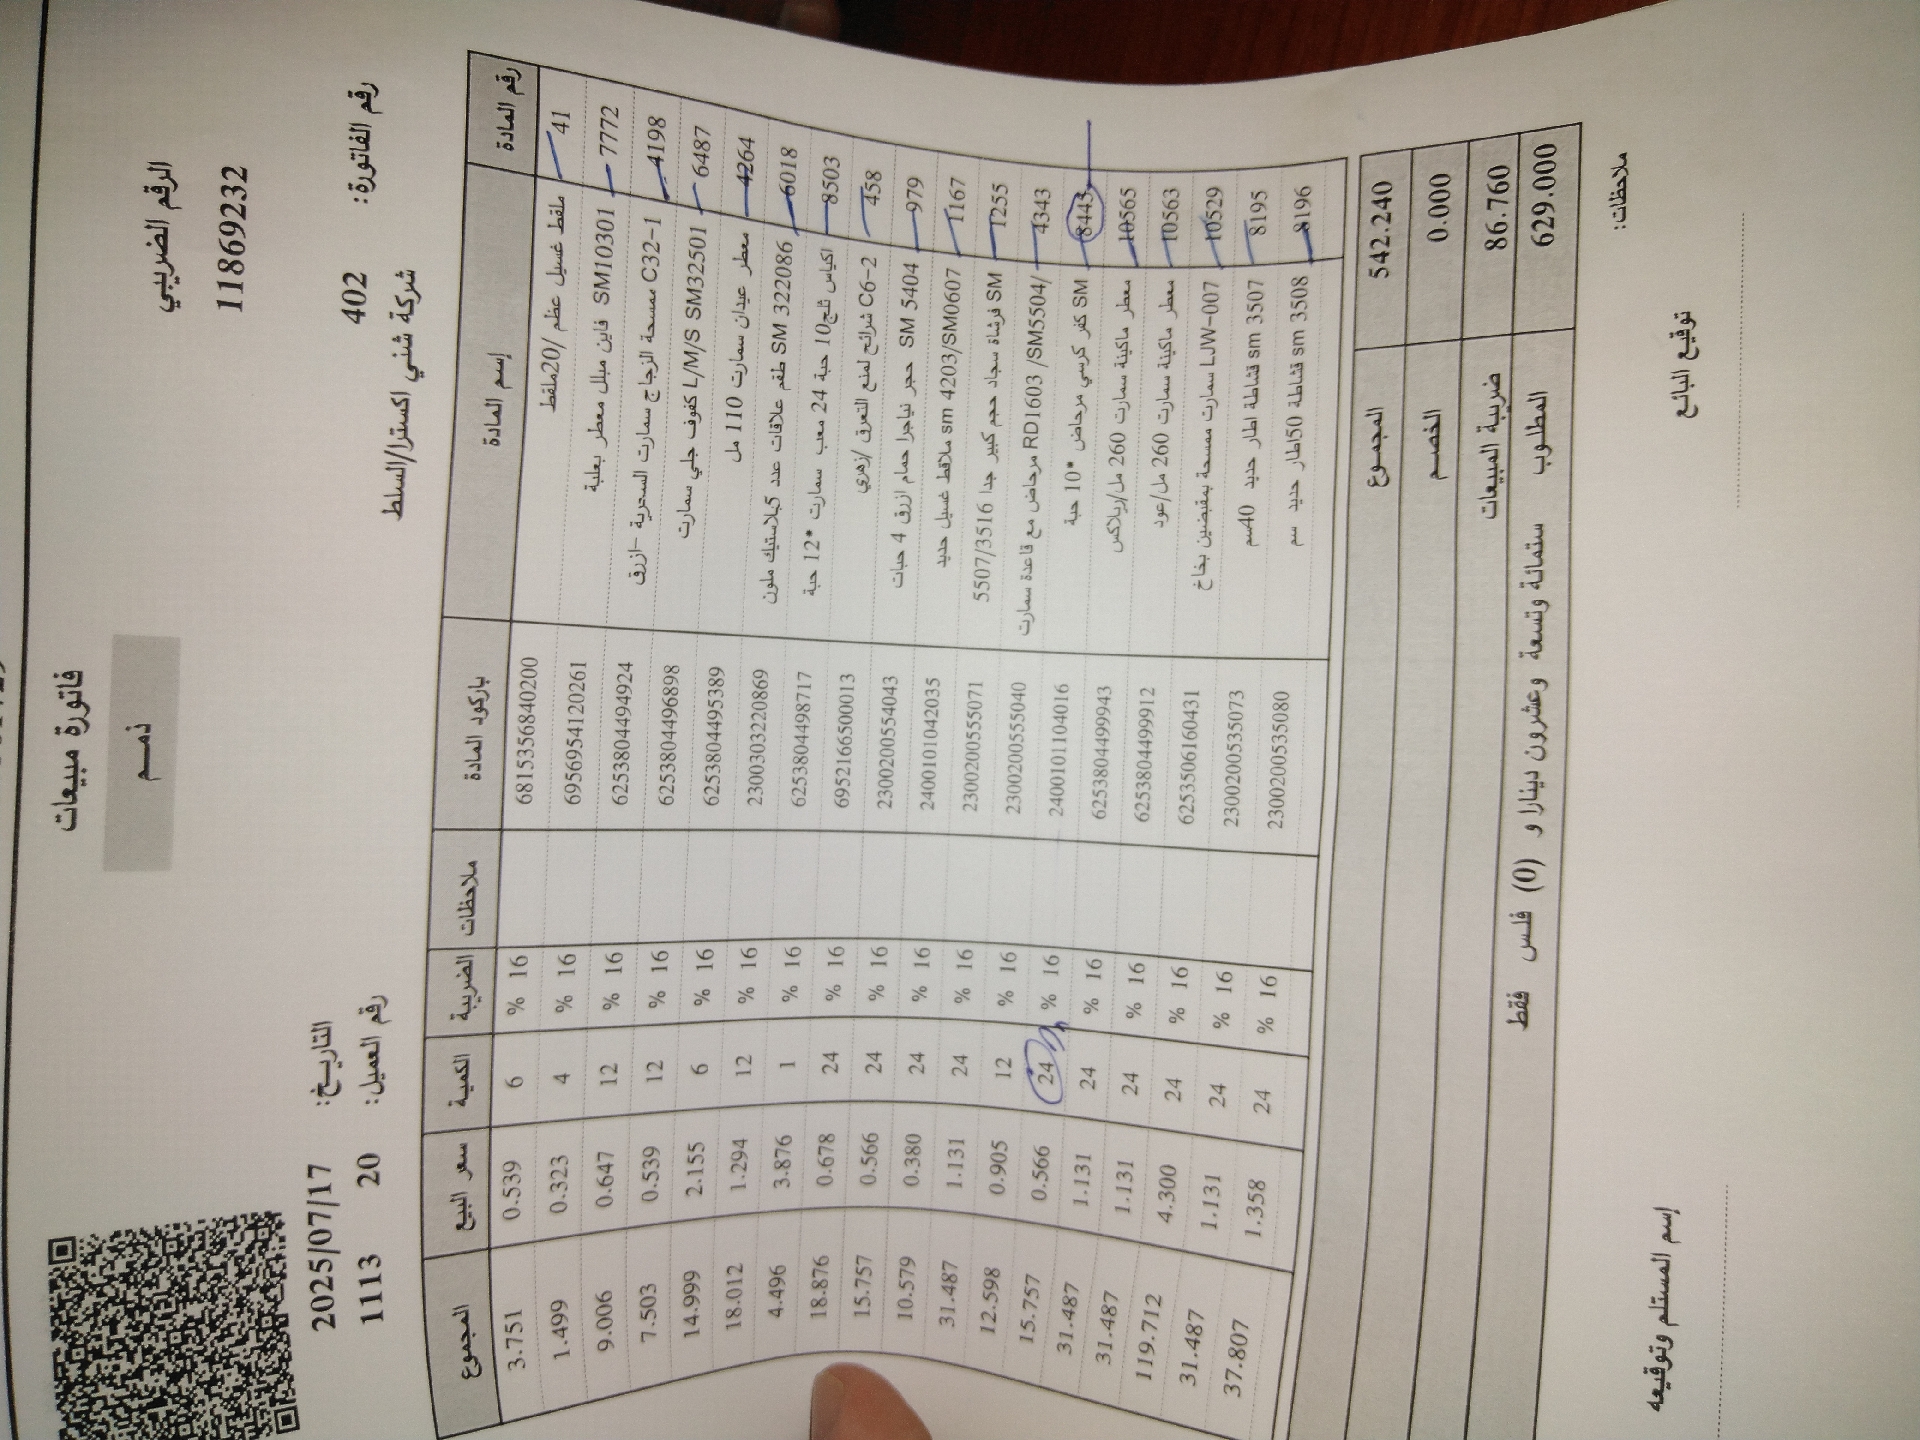 فاتورة مبيعات
ذمم
الرقم الضريبي
11869232
التاريخ: 2025/07/17
رقم الفاتورة: 402
رقم العميل: 20 1113
شركة شني اكسترا/السلط
رقم المادة إسم المادة باركود المادة ملاحظات الضريبة الكمية سعر البيع المجموع
41 ملقط غسيل عظم /20ملقط 6815356840200 16 % 6 0.539 3.751
7772 فاين مبلل معطر بعلبة SM10301 6956954120261 16 % 4 0.323 1.499
4198 ممسحة الزجاج سمارت السحرية -ازرق C32-1 6253804494924 16 % 12 0.647 9.006
6487 كفوف جلي سمارت L/M/S SM32501 6253804496898 16 % 12 0.539 7.503
4264 معطر عيدان سمارت 110 مل 6253804495389 16 % 6 2.155 14.999
6018 طقم علاقات عدد 5بلاستيك ملون SM 322086 2300303220869 16 % 12 1.294 18.012
8503 اكياس ثلج10 حبة 24 معب سمارت *12 حبة 6253804498717 16 % 1 3.876 4.496
458 شرائح لمنع التعرق /زهري C6-2 6952166500013 16 % 24 0.678 18.876
979 حجر نياجرا حمام ازرق 4 حبات SM 5404 2300200554043 16 % 24 0.566 15.757
1167 ملاقط غسيل حديد sm 4203/SM0607 2400101042035 16 % 24 0.380 10.579
1255 فرشاة سجاد حجم كبير جدا SM 5507/3516 2300200555071 16 % 24 1.131 31.487
4343 مرحاض مع قاعدة سمارت RD1603 /SM5504/ 2300200555040 16 % 12 0.905 12.598
8443 كفر كرسي مرحاض *10 حبة SM 2400101104016 16 % 24 0.566 15.757
10565 معطر ماكينة سمارت 260 مل/ريلاكس 6253804499943 16 % 24 1.131 31.487
10563 معطر ماكينة سمارت 260 مل/عود 6253804499912 16 % 24 1.131 31.487
10529 سمارت ممسحة بمقبضين بخاخ LJW-007 6253506160431 16 % 24 4.300 119.712
8195 قشاطة اطار حديد 40سم sm 3507 2300200535073 16 % 24 1.131 31.487
8196 قشاطة 50اطار حديد سم sm 3508 2300200535080 16 % 24 1.358 37.807
المجموع 542.240
الخصم 0.000
ضريبة المبيعات 86.760
المطلوب 629.000
ستمائة وتسعة وعشرون دينارا و (0) فلس فقط
ملاحظات:
توقيع البائع
إسم المستلم وتوقيعه